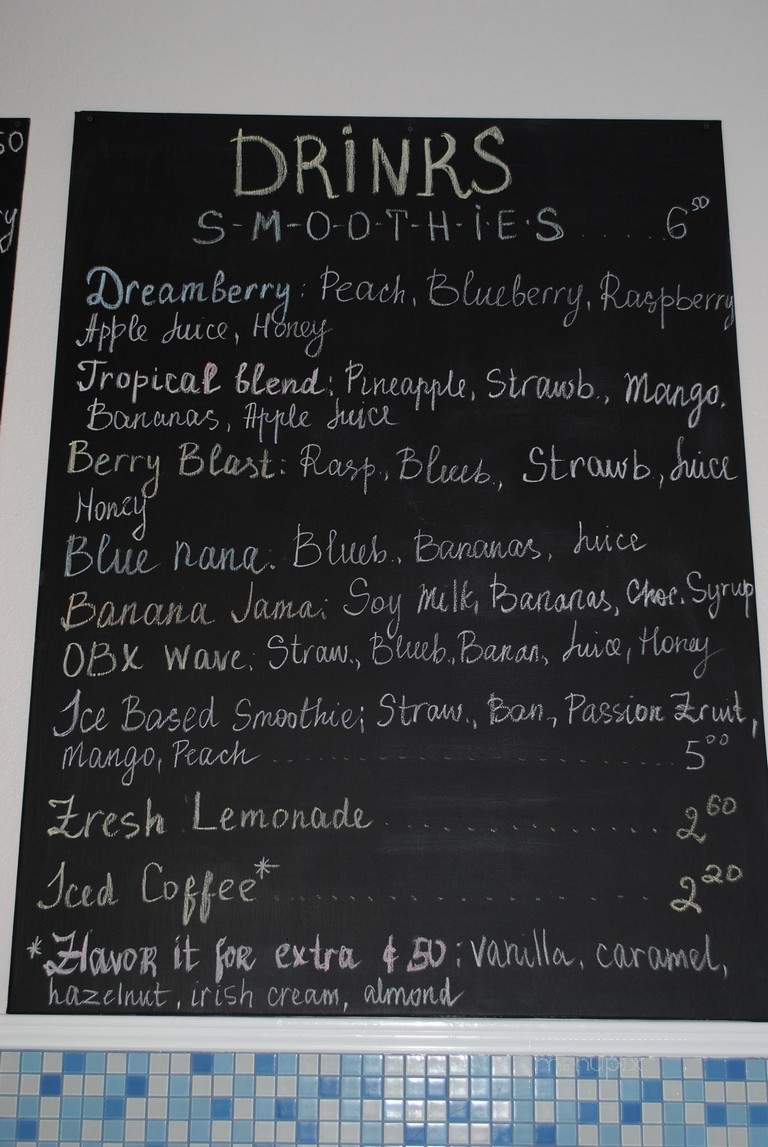 50
ry
DRiNKS
S-M-O-O-T-H-i-E-S ........ 6 50
Dreamberry: Peach, Blueberry, Raspberry
Apple Juice, Honey
Tropical blend: Pineapple, Strawb., Mango,
Bananas, Apple Juice
Berry Blast: Rasp., Blueb., Strawb., Juice
Honey
Blue nana: Blueb., Bananas, Juice
Banana Jama: Soy Milk, Bananas, Choc. Syrup
OBX Wave: Straw., Blueb., Banan., Juice, Honey
Ice Based Smoothie: Straw., Ban., Passion Fruit,
Mango, Peach ........ 5 00
Fresh Lemonade ........ 2 60
Iced Coffee* ........ 2 20
*Flavor it for extra ¢ 50: vanilla, caramel,
hazelnut, irish cream, almond
menupix